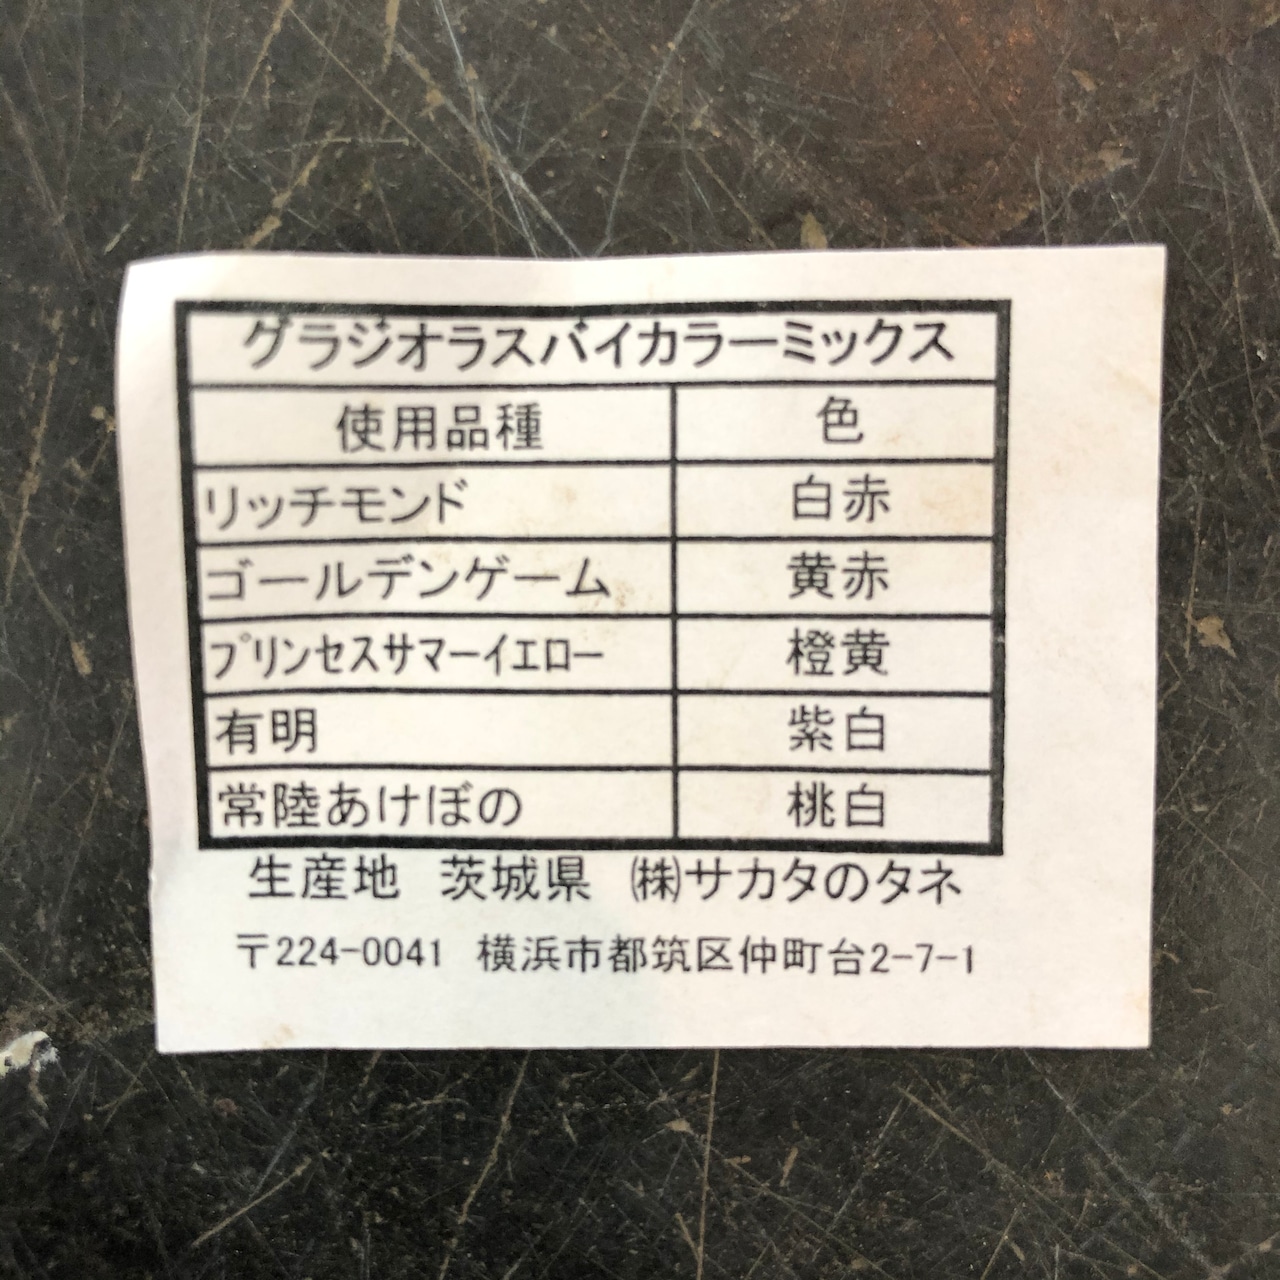 グラジオラスバイカラーミックス
使用品種 色
リッチモンド 白赤
ゴールデンゲーム 黄赤
プリンセスサマーイエロー 橙黄
有明 紫白
常陸あけぼの 桃白
生産地 茨城県 ㈱サカタのタネ
〒224-0041 横浜市都筑区仲町台2-7-1